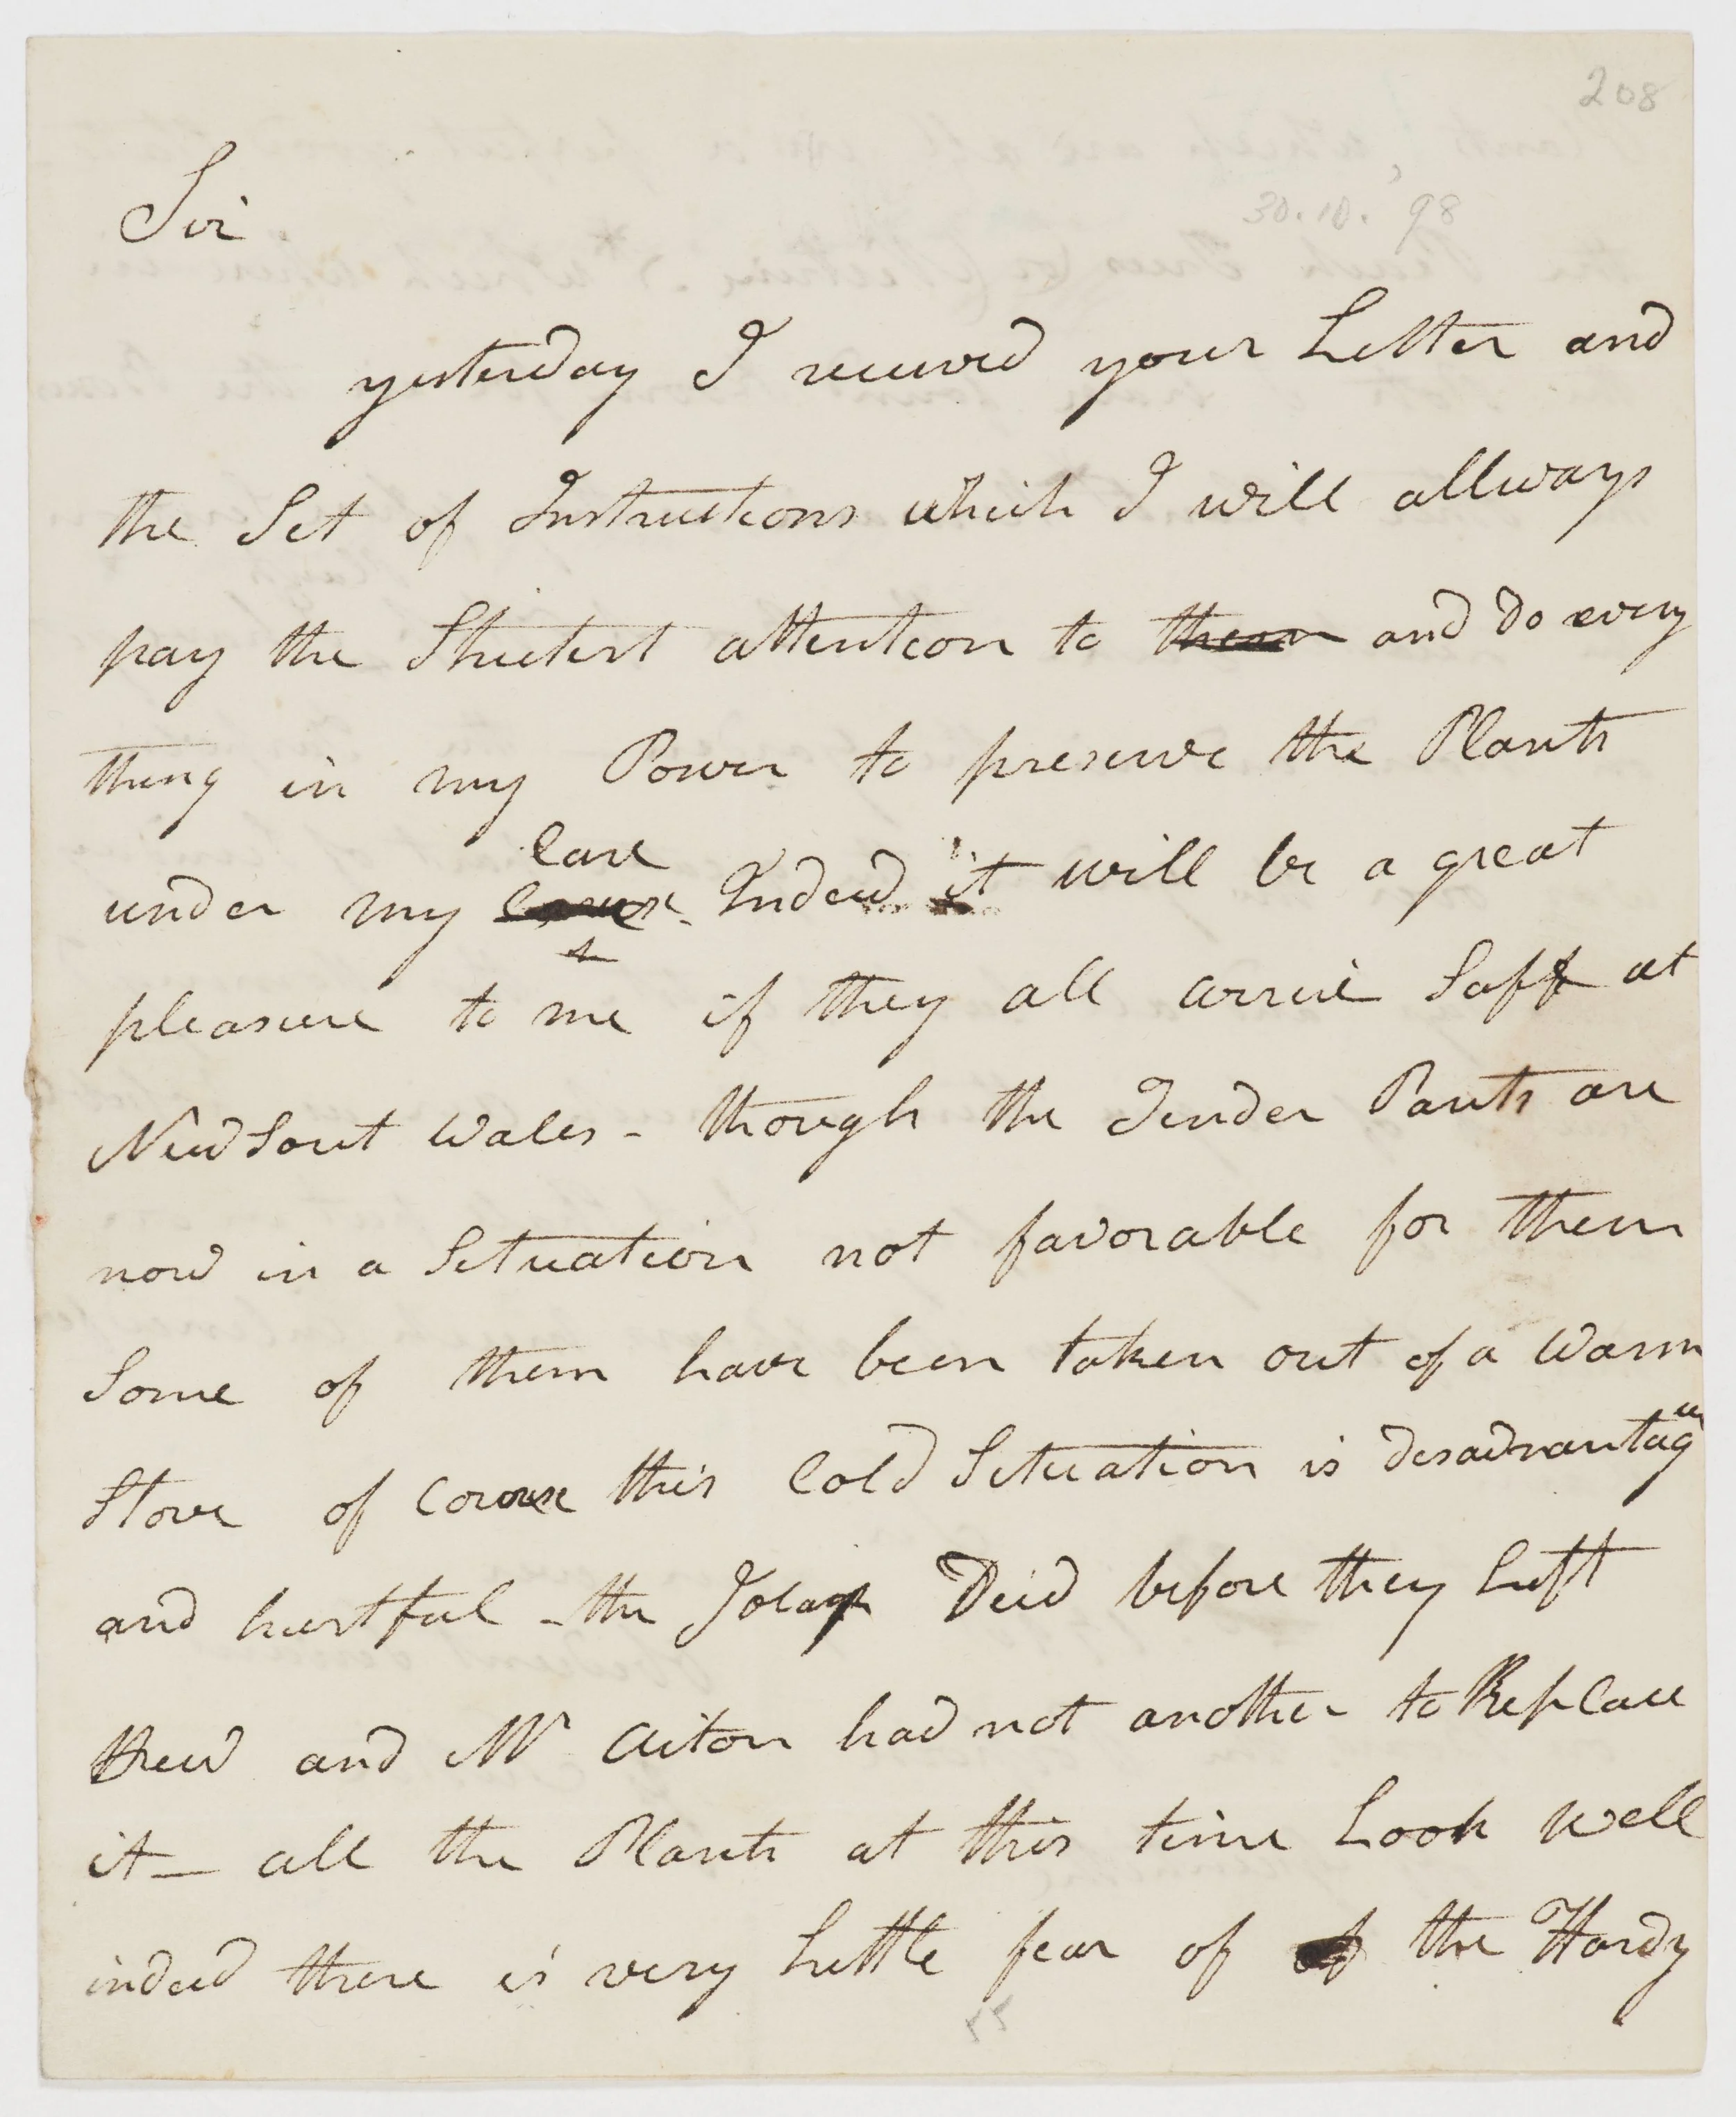 208
Sir
30.10.98
yesterday I received your Letter and
the Set of Instructions which I will allways
pay the Strictest attention to them and do every
thing in my Power to preserve the Plants
care
under my Indeed it will be a great
pleasure to me if they all arrive Saff at
New Sout Wales - though the Tender Pants are
now in a Situation not favorable for them
Some of them have been taken out of a Warm
Stove of Course this Cold Situation is disadvantag
and hurtful - the Jolap Deid before they Left
Kew and Mr Aiton had not another to Replace
it - all the Plants at this time Look well
indeed there is very Little fear of of the Hardy